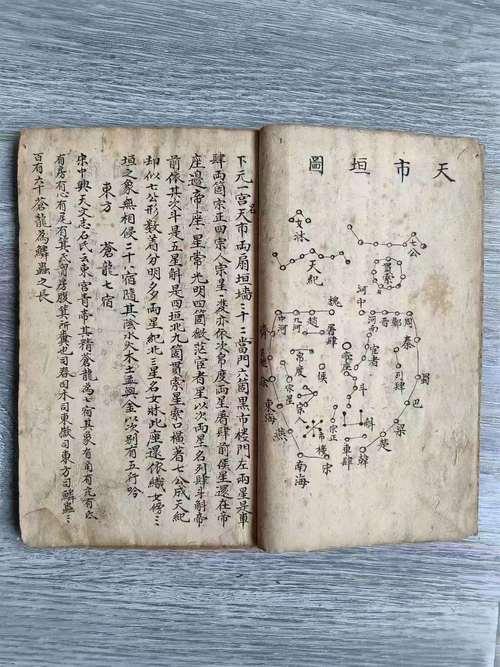 天市垣圖
女牀
七公
天紀
貫索
河中
魏
趙
九河
河間
鄭
晉
周
秦
屠肆
宦者
帝座
侯
帛度
列肆
蜀
巴
斗
斛
宗星
宗人
宗正
東海
燕
市樓
車肆
梁
楚
韓
宋
南海
下元一宮天市兩扇垣墻二十二當門六箇黑市樓門左兩星是車
肆兩箇宗正四宗人宗星一雙亦依次帛度兩星屠肆前侯星還在帝
座邊帝座一星常光明四箇微茫宦者星以次兩星名列肆斗斛帝
前依其次斗是五星斛是四垣北九箇貫索星索口橫著七公成天紀
却似七公形數着分明多兩星紀北三星名女牀此座還依織女傍三
垣之象無相侵二十八宿隨其陰火水木土並與金以次别有五行吟
東方 蒼龍七宿
宋中興天文志石氏云東宮青帝其精蒼龍爲七宿其象有角有亢有氐
有房有心有尾有箕氐胸房腹箕所糞也司春司木司東嶽司東方司鱗蟲三
百有六十蒼龍為鱗蟲之長